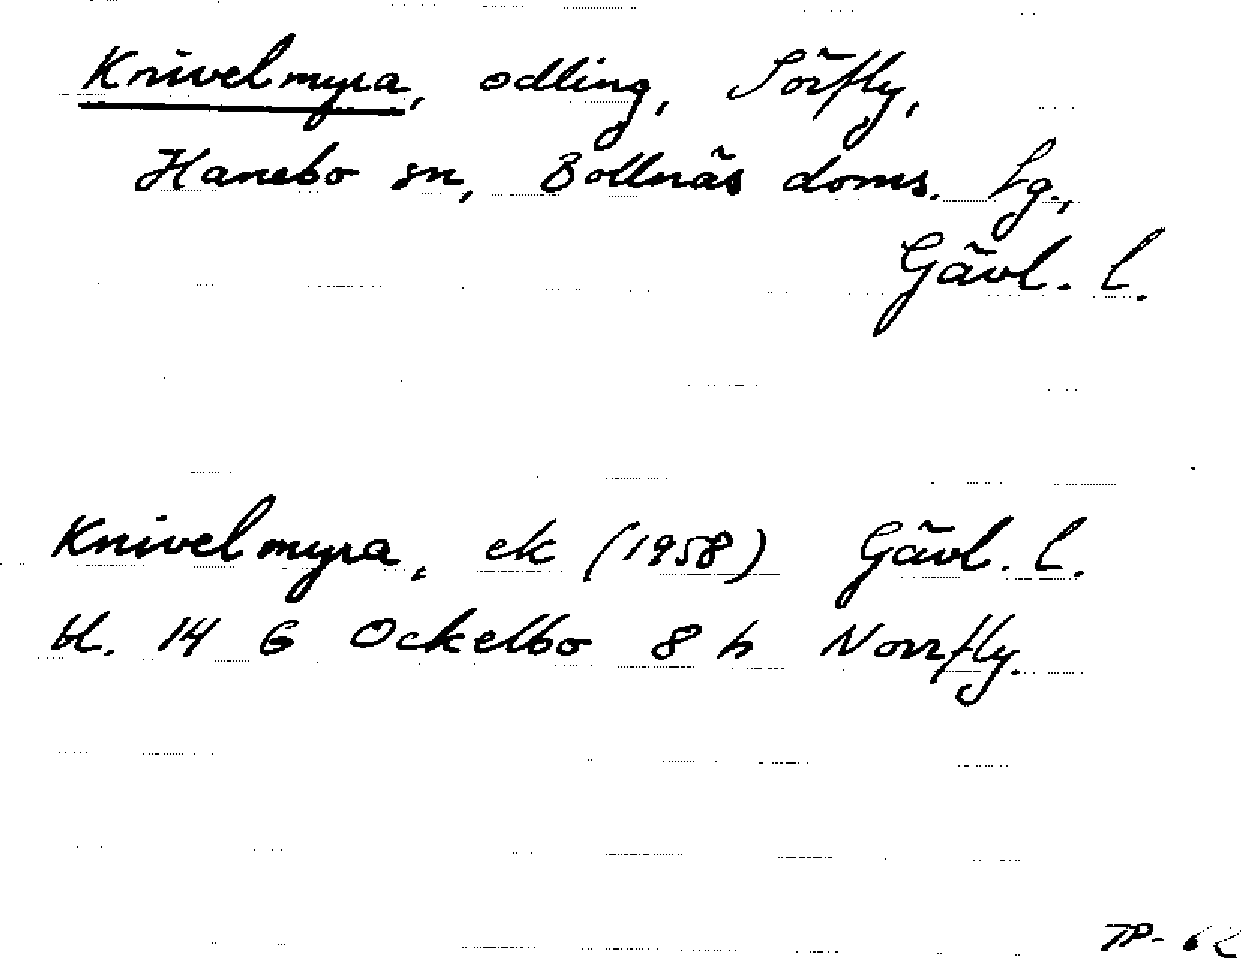 Knivelmyra, odling, Sörfly,
Hanebo sn, Bollnäs doms. Lg.,
Gävl. l.
Knivelmyra, ek (1958) Gävl. l.
bl. 14 G Ockelbo 8 h Norrfly.
TP-62